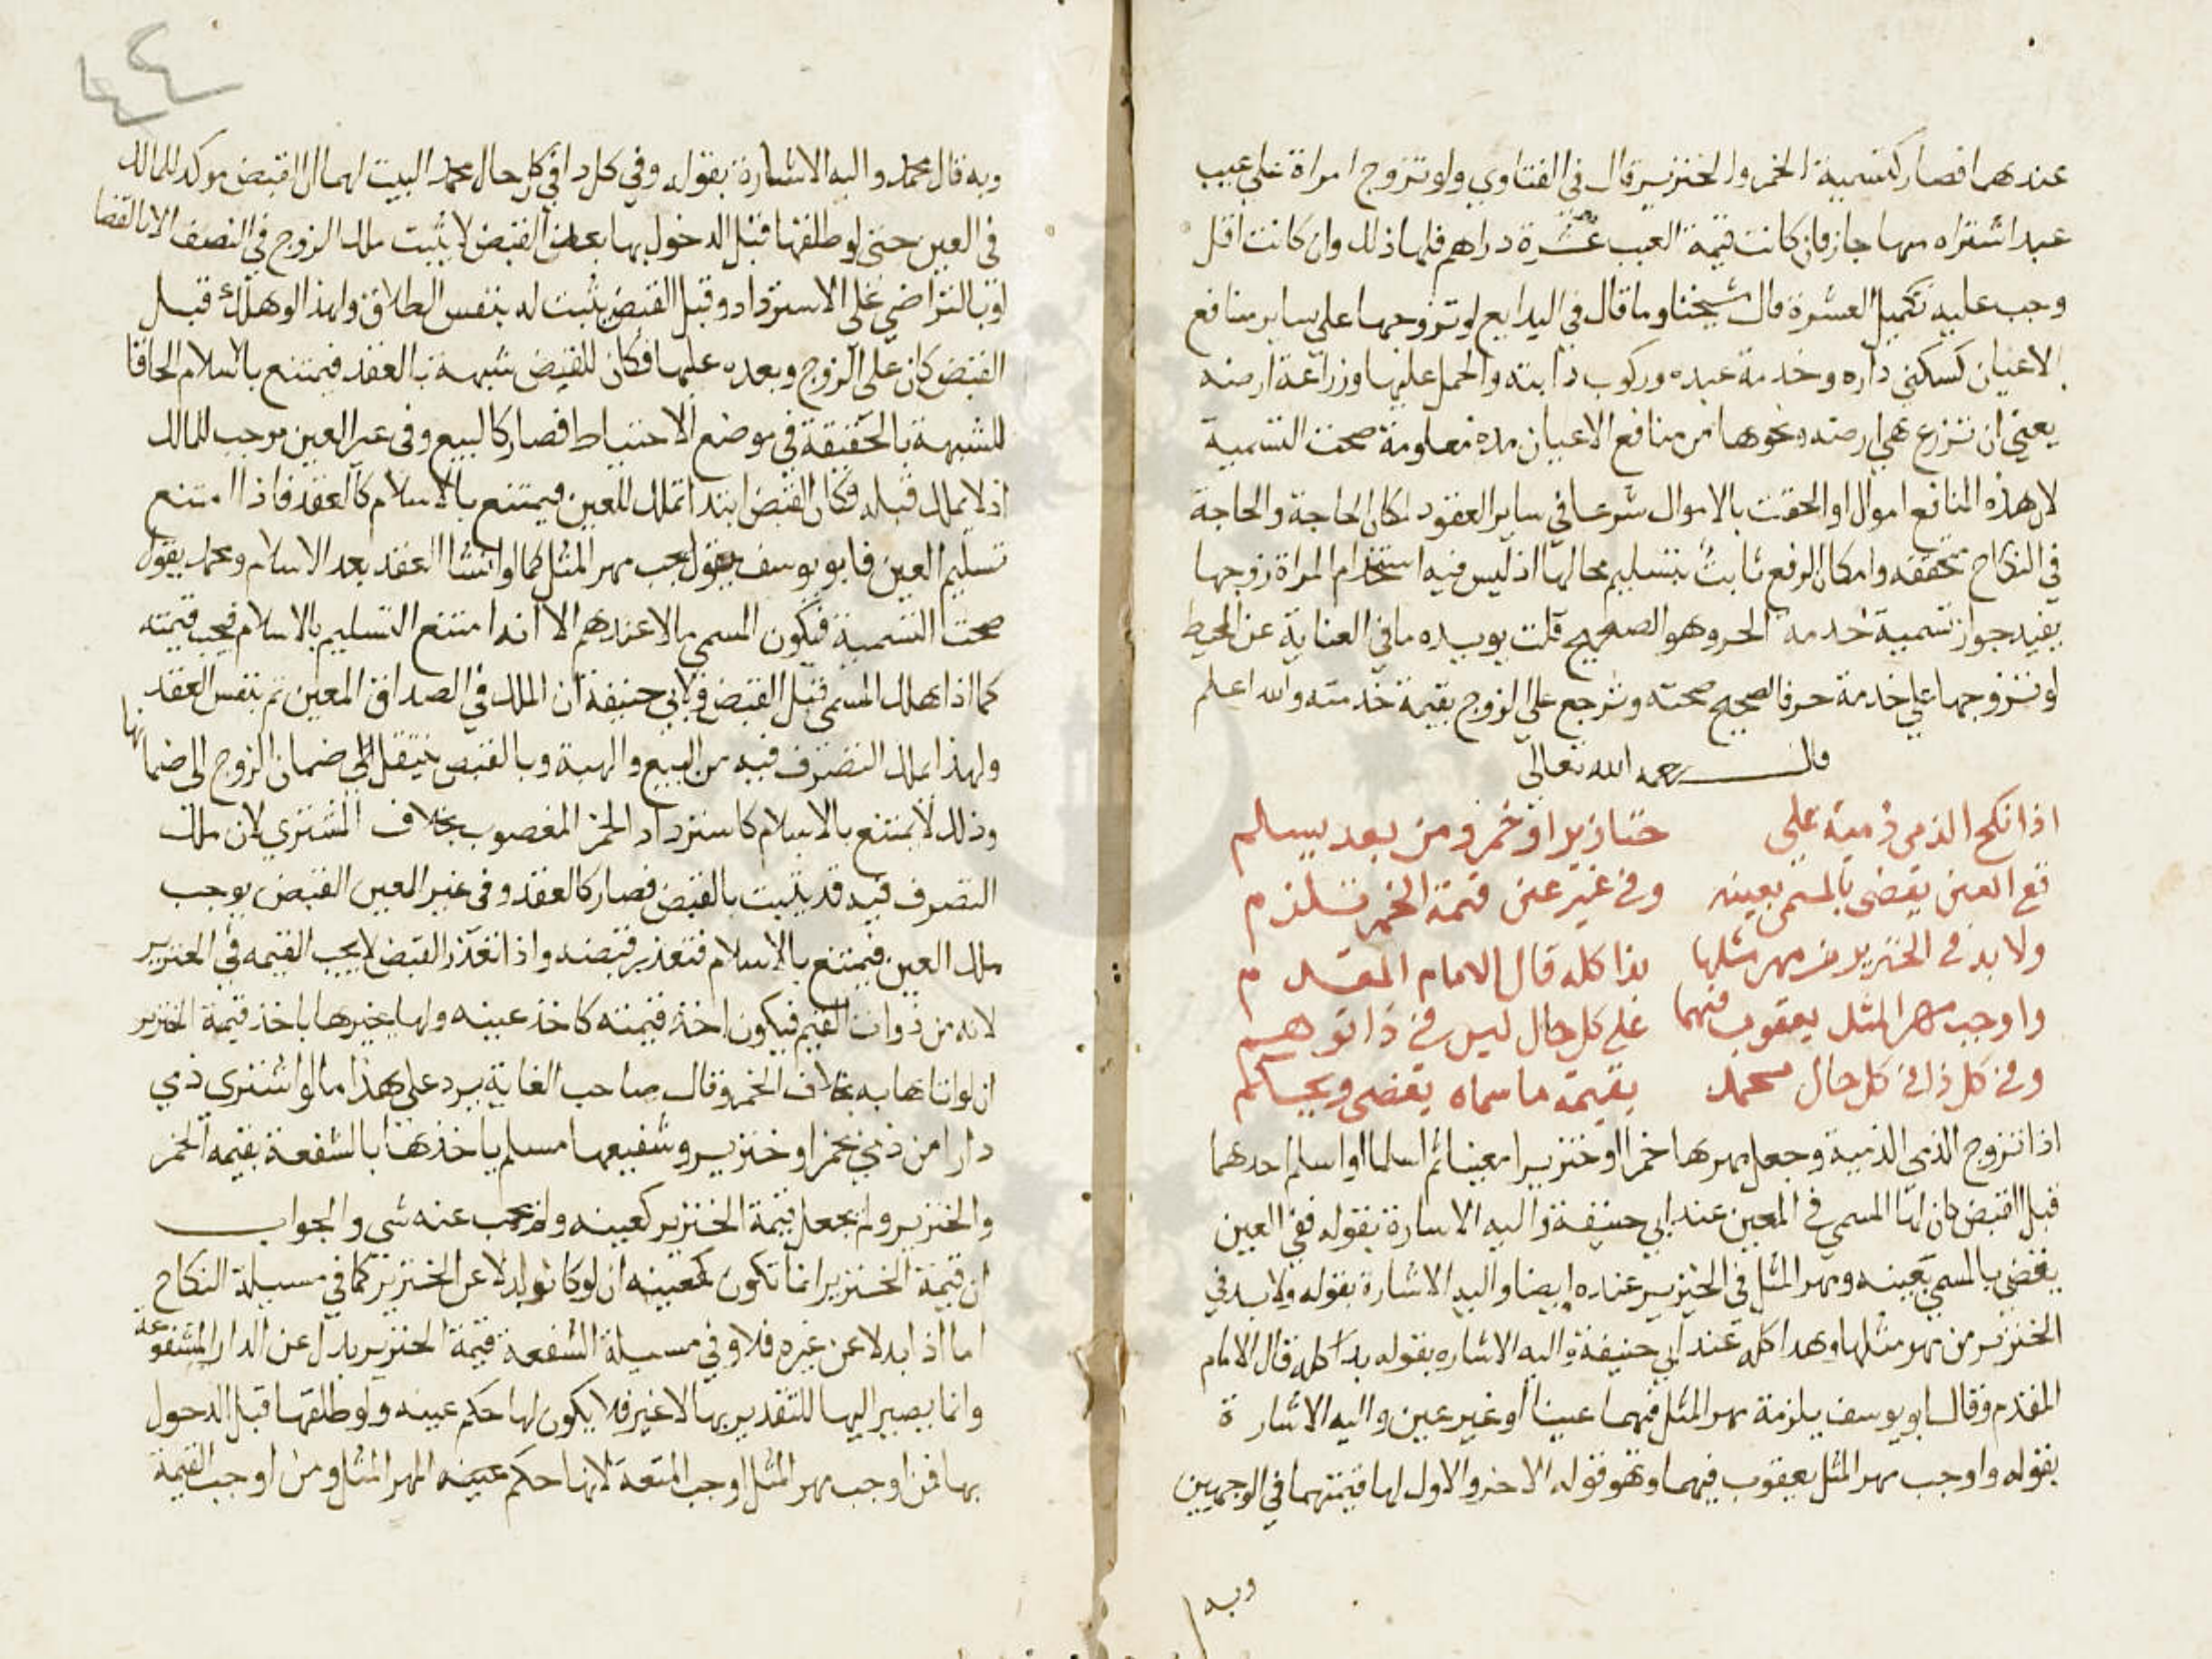 عندهما فصار كتسمية الخمر والخنزير قال في الفتاوي ولو تزوج امراة علي عيب
عبد اشتراه منها جاز فان كانت قيمة العيب عشرة دراهم فلها ذلك وان كانت اقل
وجب عليه تكميل العشرة قال شيخنا وما قال في البدايع لو تزوجها علي ساير منافع
الاعيان كسكني داره وخدمة عبده وركوب دابته والحمل عليها وزراعة ارضه
يعني ان تزرع هي ارضه ونحوها من منافع الاعيان مدة معلومة صحت التسمية
لان هذه المنافع اموال او الحقت بالاموال شرعا في ساير العقود لمكان الحاجة والحاجة
في النكاح متحققه وامكان الرفع ثابت بتسليم محالها اذ ليس فيه استخدام المراة زوجها
يفيد جواز تسمية خدمة الحر وهو الصحيح قلت يويده ما في العناية عن المحيط
لو تزوجها علي خدمة حر فالصحيح صحته وترجع علي الزوج بقيمة خدمته والله اعلم
قال رحمه الله تعالي
اذا نكح الذمي ذمية علي خنازير او خمر ومن بعد يسلم
فع العين يقضي بالمسمي بعينه وفي غير عين قيمة الخمر تلزم
ولا بد في الخنزير من مهر مثلها بذا كله قال الامام المقدم
واوجب مهر المثل يعقوب فيهما علي كل حال ليس في ذا توهم
وفي كل ذا في كل حال محمد بقيمة ما سماه يقضي ويحكم
اذا تزوج الذمي الذمية وجعل مهرها خمرا او خنزيرا معينا ثم اسلما او اسلم احدهما
قبل القبض كان لها المسمي في المعين عند ابي حنيفة واليه الاشارة بقوله ففي العين
يقضي بالمسمي بعينه ومهر المثل في الخنزير عنده ايضا واليه الاشارة بقوله ولا بد في
الخنزير من مهر مثلها وهذا كله عند ابي حنيفة واليه الاشاره بقوله بذا كله قال الامام
المقدم وقال ابو يوسف يلزمة مهر المثل فيهما عينا او غير عين واليه الاشارة
بقوله واوجب مهر المثل يعقوب فيهما وهو قوله الاخر والاول لها قيمتهما في الوجهين
وبه
٤٤
وبه قال محمد واليه الاشارة بقوله وفي كل ذا في كل حال محمد البيت لهما ان القبض موكد للمالك
في العين حتي لو طلقها قبل الدخول بها بعد القبض لا يثبت ملك الزوج في النصف الا بالقضا
او بالتراضي علي الاسترداد وقبل القبض يثبت له بنفس الطلاق ولهذا لو هلك قبل
القبض كان علي الزوج وبعده عليها فكان للقبض شبهة بالعقد فيمتنع بالاسلام الحاقا
للشبهة بالحقيقة في موضع الاحتياط فصار كالبيع وفي غير العين موجب للمالك
اذ لا يملك قبله فكان القبض ابتدا تملك للعين فيمتنع بالاسلام كالعقد فاذا امتنع
تسليم العين فابو يوسف يقول يجب مهر المثل كما لو انشا العقد بعد الاسلام ومحمد يقول
صحت التسمية فيكون المسمي مالا عندهم الا انه امتنع التسليم بالاسلام فيجب قيمته
كما اذا هلك المسمي قبل القبض ولابي حنيفة ان الملك في الصداق المعين تم بنفس العقد
ولهذا يملك التصرف فيه من البيع والهبة وبالقبض ينتقل الي ضمان الزوج الي ضمانها
وذلك لا يمتنع بالاسلام كاسترداد الخمر المغصوب بخلاف المشتري لان ملك
التصرف فيه قد يثبت بالقبض فصار كالعقد وفي غير المعين القبض يوجب
ملك العين فيمتنع بالاسلام فتعذر قبضه واذا تعذر القبض لا يجب القيمه في الخنزير
لانه من ذوات القيم فيكون اخذ قيمته كاخذ عينه ولها يخيرها باخذ قيمة الخنزير
ان لو اتاها به بخلاف الخمر وقال صاحب الغاية يرد علي هذا ما لو اشتري ذمي
دارا من ذمي بخمر او خنزير وشفيعها مسلم ياخذها بالشفعة بقيمه الخمر
والخنزير ولم يجعل قيمة الخنزير كعينه ولم يجب عنه شي والجواب
ان قيمة الخنزير انما تكون كعينه ان لو كانو بدلا عن الخنزير كما في مسيلة النكاح
اما اذا بدلا عن غيره فلا وفي مسيلة الشفعة قيمة الخنزير بدل عن الدار المشفوعة
وانما يصير اليها للتقدير بها لا غير فلا يكون لها حكم عينه ولو طلقها قبل الدخول
بها فمن اوجب مهر المثل اوجب المتعة لانها حكم عينه المهر المثل ومن اوجب القيمة